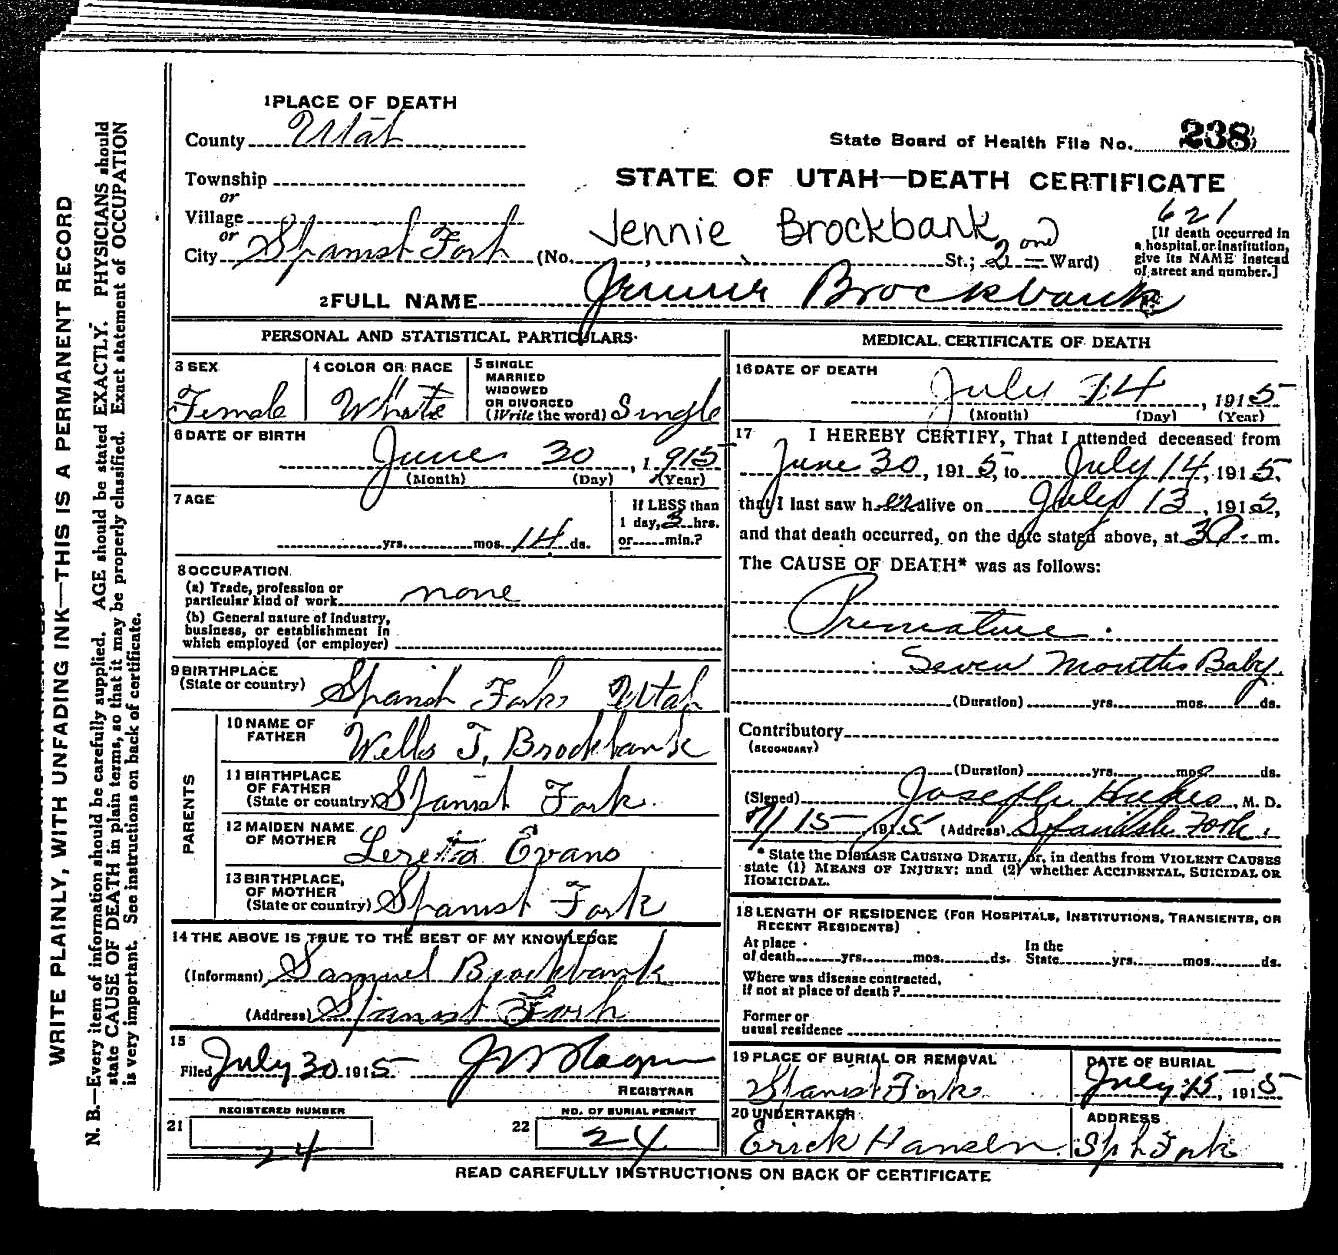 1 PLACE OF DEATH
County Utah
State Board of Health File No. 238
Township
or
Village
or
City Spanish Fork (No. St.; 2nd Ward)
STATE OF UTAH—DEATH CERTIFICATE
621
Jennie Brockbank
[If death occurred in
a hospital or institution,
give its NAME instead
of street and number.]
2 FULL NAME Jennie Brockbank
PERSONAL AND STATISTICAL PARTICULARS
3 SEX
Female
4 COLOR OR RACE
White
5 SINGLE
MARRIED
WIDOWED
OR DIVORCED
(Write the word) Single
6 DATE OF BIRTH
June 30, 1915
(Month) (Day) (Year)
7 AGE
yrs. mos. 14 ds.
If LESS than
1 day, 3 hrs.
or min.?
8 OCCUPATION
(a) Trade, profession or
particular kind of work none
(b) General nature of Industry,
business, or establishment in
which employed (or employer)
9 BIRTHPLACE
(State or country) Spanish Fork Utah
PARENTS
10 NAME OF
FATHER Wells T. Brockbank
11 BIRTHPLACE
OF FATHER
(State or country) Spanish Fork
12 MAIDEN NAME
OF MOTHER Loretta Evans
13 BIRTHPLACE,
OF MOTHER
(State or country) Spanish Fork
14 THE ABOVE IS TRUE TO THE BEST OF MY KNOWLEDGE
(Informant) Samuel Brockbank
(Address) Spanish Fork
15
Filed July 30 1915
REGISTRAR
REGISTERED NUMBER
21 24
NO. OF BURIAL PERMIT
22 24
MEDICAL CERTIFICATE OF DEATH
16 DATE OF DEATH
July 14, 1915
(Month) (Day) (Year)
17 I HEREBY CERTIFY, That I attended deceased from
June 30, 1915, to July 14, 1915,
that I last saw her alive on July 13, 1915,
and that death occurred, on the date stated above, at m.
The CAUSE OF DEATH* was as follows:
Premature.
Seven Months Baby
(Duration) yrs. mos. ds.
Contributory
(SECONDARY)
(Duration) yrs. mos. ds.
(Signed) Joseph Hughes, M. D.
7/15 1915 (Address) Spanish Fork.
*State the DISEASE CAUSING DEATH, or, in deaths from VIOLENT CAUSES
state (1) MEANS OF INJURY; and (2) whether ACCIDENTAL, SUICIDAL OR
HOMICIDAL.
18 LENGTH OF RESIDENCE (FOR HOSPITALS, INSTITUTIONS, TRANSIENTS, OR
RECENT RESIDENTS)
At place
of death yrs. mos. ds.
In the
State yrs. mos. ds.
Where was disease contracted,
if not at place of death?
Former or
usual residence
19 PLACE OF BURIAL OR REMOVAL
Spanish Fork
DATE OF BURIAL
July 15, 1915
20 UNDERTAKER
Erick Hansen
ADDRESS
Sph Fork
READ CAREFULLY INSTRUCTIONS ON BACK OF CERTIFICATE
WRITE PLAINLY, WITH UNFADING INK—THIS IS A PERMANENT RECORD
N. B.—Every item of information should be carefully supplied. AGE should be stated EXACTLY. PHYSICIANS should
state CAUSE OF DEATH in plain terms, so that it may be properly classified. Exact statement of OCCUPATION
is very important. See instructions on back of certificate.